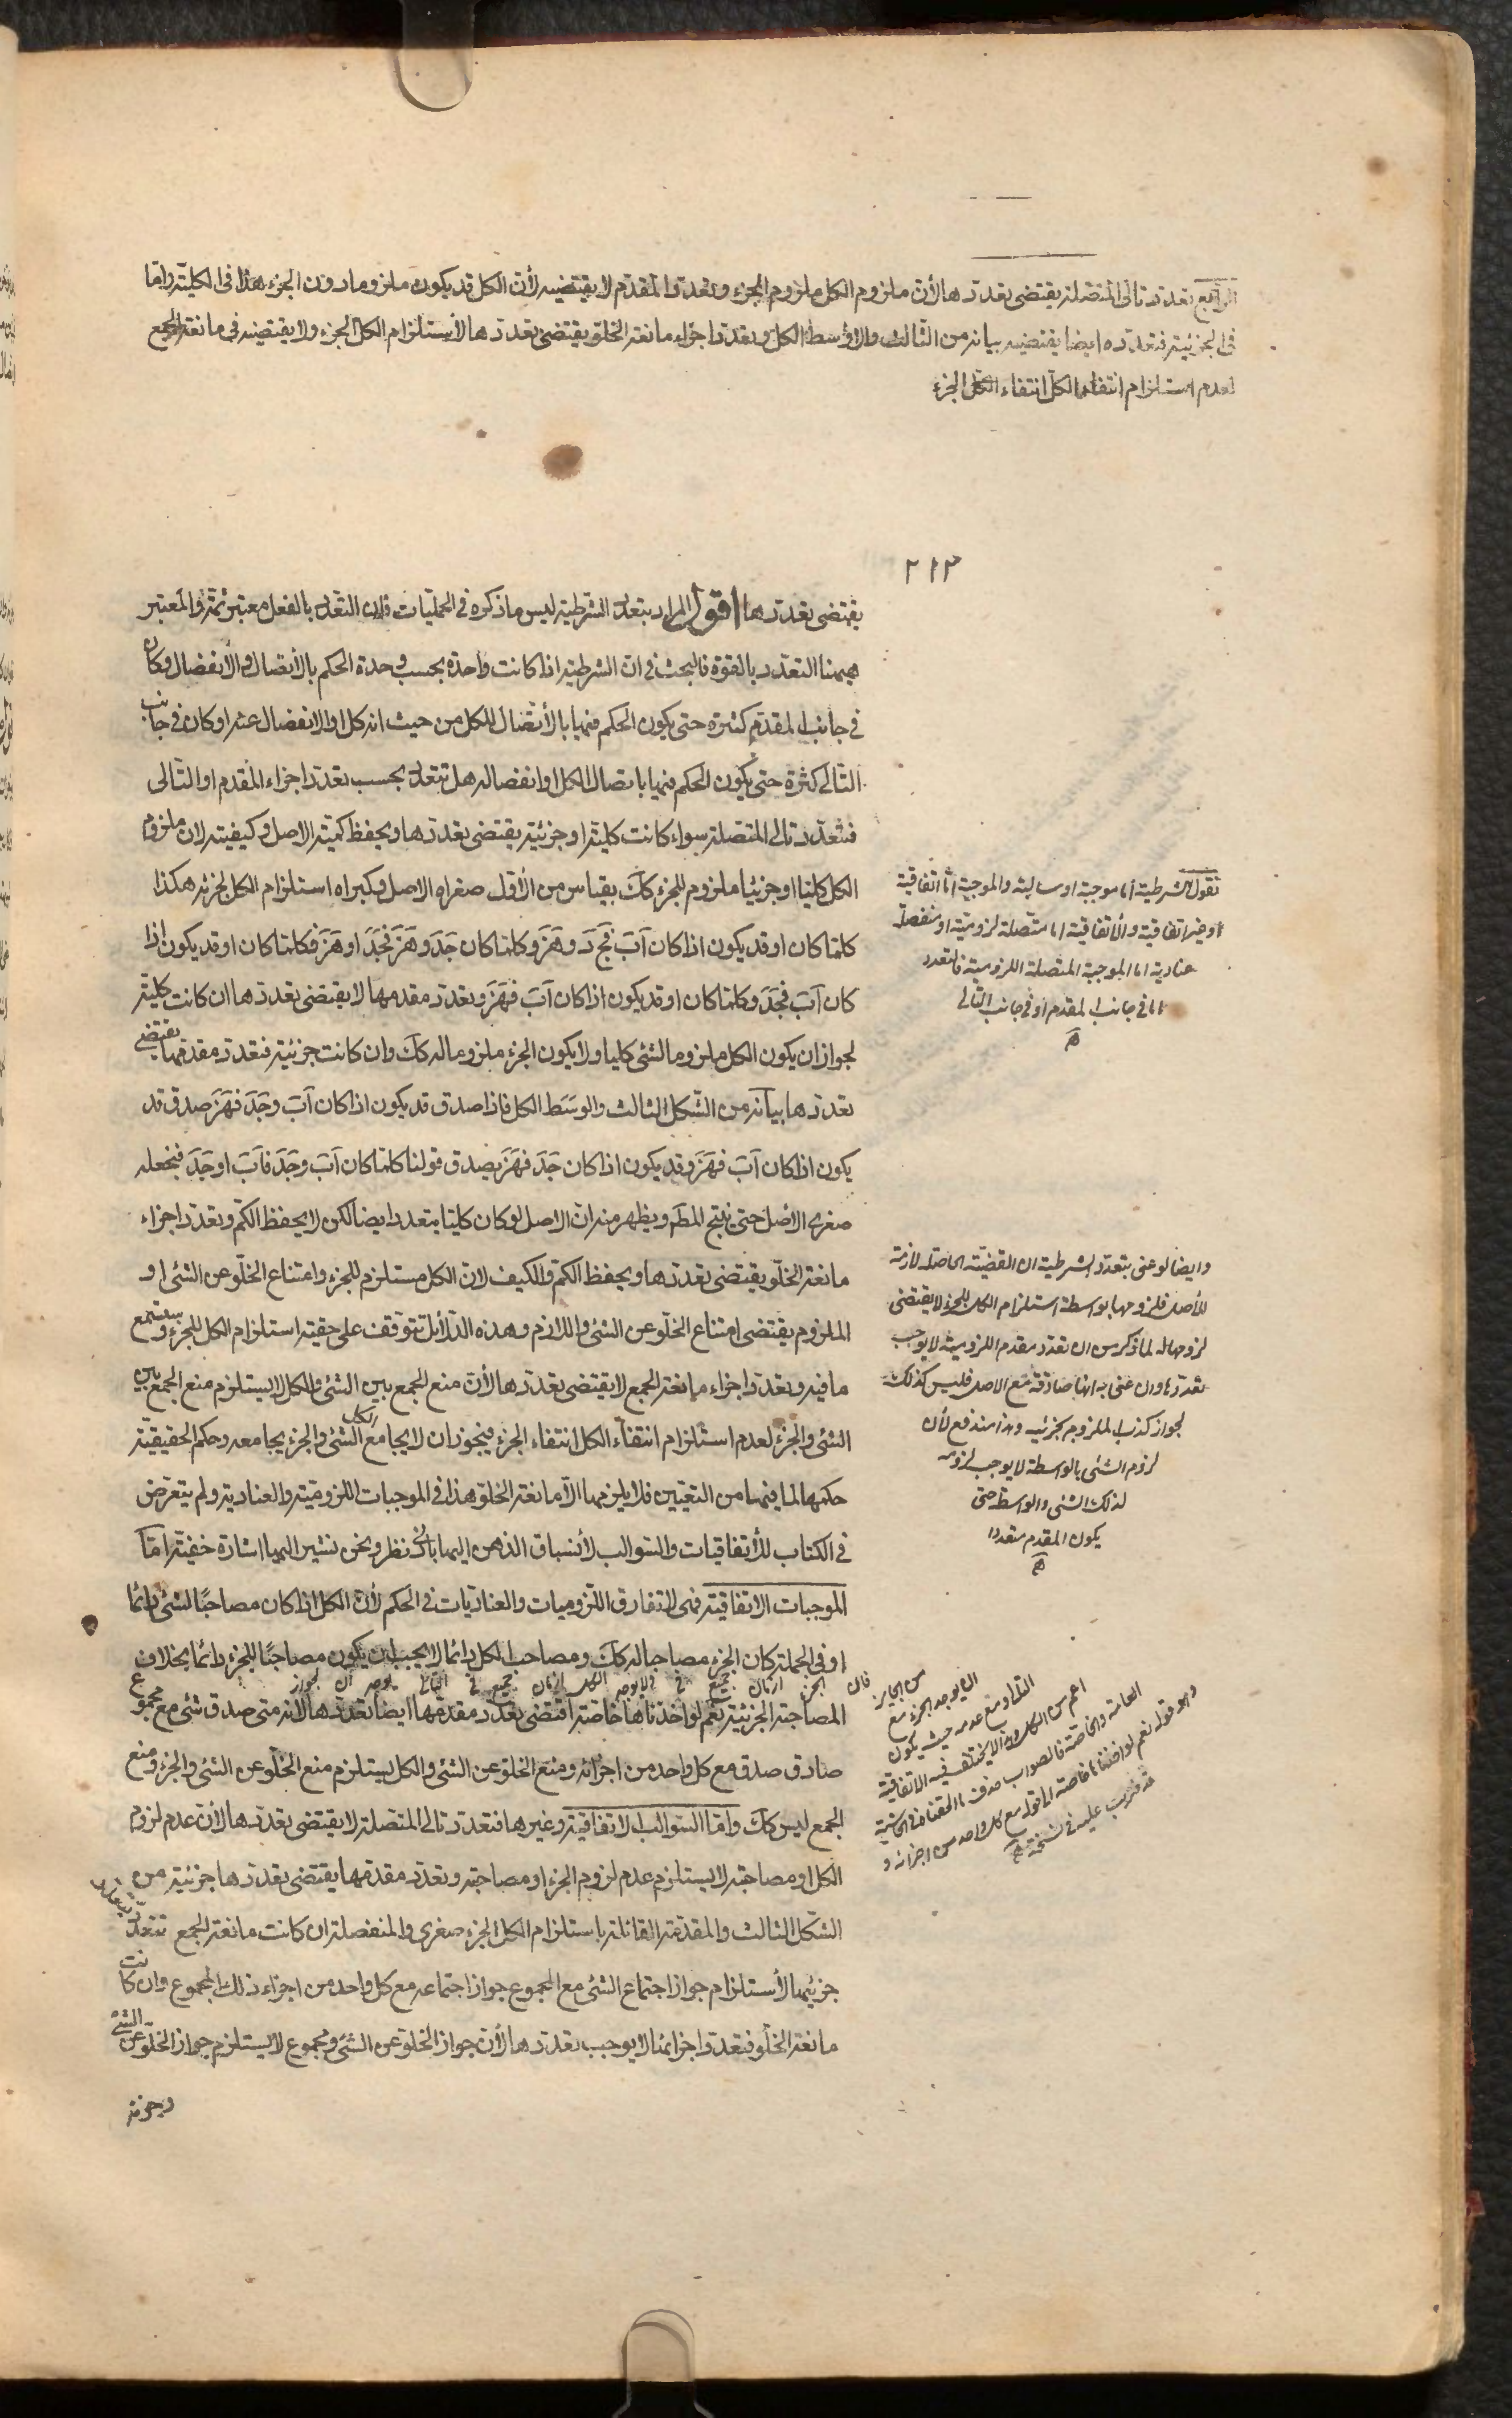 الرابع تعدد تالى المتصلة يقتضى تعددها لأن ملزوم الكل ملزوم الجزء وتعدد المقدم لا يقتضيه لأن الكل قد يكون ملزوما دون الجزء هذا فى الكلية واما
فى الجزئية فتعدده ايضا يقتضيه بيانه من الثالث والاوسط الكل وتعدد اجزاء مانعة الخلو يقتضى تعددها لاستلزام الكل الجزء ولا يقتضيه فى مانعة الجمع
لعدم استلزام انتفاء الكل انتفاء الجزء
٢١٣
يقتضى تعددها اقول المراد بتعدد الشرطية ليس ما ذكره فى الحمليات فان التعدد بالفعل معتبر ثمة والمعتبر
ههنا التعدد بالقوة فالبحث فى ان الشرطية اذا كانت واحدة بحسب وحدة الحكم بالاتصال والانفصال وكان
فى جانب المقدم كثرة حتى يكون الحكم فيها بالاتصال للكل من حيث انه كل او الانفصال عنه او كان فى جانب
التالى كثرة حتى يكون الحكم فيها باتصال الكل او انفصاله هل تتعدد بحسب تعدد اجزاء المقدم او التالى
فتعدد تالى المتصلة سواء كانت كلية او جزئية يقتضى تعددها ويحفظ كمية الاصل وكيفيته لان ملزوم
الكل كليا او جزئيا ملزوم للجزء كك بقياس من الأول صغراه الاصل وكبراه استلزام الكل لجزئه هكذا
كلما كان او قد يكون اذا كان آب فج د و هز وكلما كان جد و هز فجد او هز فكلما كان او قد يكون اذا
كان آب فجد وكلما كان او قد يكون اذا كان آب فهز وتعدد مقدمها لا يقتضى تعددها ان كانت كلية
لجواز ان يكون الكل ملزوما لشئ كليا ولا يكون الجزء ملزوما له كك وان كانت جزئية فتعدد مقدمها يقتضى
تعددها بيانه من الشكل الثالث والوسط الكل فاذا صدق قد يكون اذا كان آب وجد فهز صدق قد
يكون اذا كان آب فهز وقد يكون اذا كان جد فهز يصدق قولنا كلما كان آب وجد فآب او جد فنجعله
صغرى الاصل حتى ينتج المط ويظهر منه ان الاصل لو كان كليا يتعدد ايضا لكن لا يحفظ الكم وتعدد اجزاء
مانعة الخلو يقتضى تعددها ويحفظ الكم والكيف لان الكل مستلزم للجزء وامتناع الخلو عن الشئ او
الملزوم يقتضى امتناع الخلو عن الشئ واللازم وهذه الدلائل تتوقف على حقية استلزام الكل للجزء وستسمع
ما فيه وتعدد اجزاء مانعة الجمع لا يقتضى تعددها لأن منع الجمع بين الشئ والكل لا يستلزم منع الجمع بين
الشئ والجزء لعدم استلزام انتفاء الكل انتفاء الجزء فيجوز ان لا يجامع الكل الشئ والجزء يجامعه وحكم الحقيقية
حكمهما لما فيها من التعيين فلا يلزمها الا مانعة الخلو هذا فى الموجبات اللزومية والعنادية ولم يتعرض
فى الكتاب للاتفاقيات والسوالب لأنسباق الذهن اليها بادنى نظر ونحن نشير اليها اشارة خفية اما
الموجبات الاتفاقية فهى لا تفارق اللزوميات والعناديات فى الحكم لأن الكل اذا كان مصاحبا لشئ دائما
او فى الجملة كان الجزء مصاحبا له كك ومصاحب الكل دائما لا يجب ان يكون مصاحبا للجزء دائما بخلاف
المصاحبة الجزئية نعم لو اخذناها خاصة اقتضى تعدد مقدمها ايضا تعددها لانه متى صدق شئ مع مجموع
صادق صدق مع كل واحد من اجزائه ومنع الخلو عن الشئ والكل يستلزم منع الخلو عن الشئ والجزء ومنع
الجمع ليس كك واما السوالب الاتفاقية وغيرها فتعدد تالى المتصلة لا يقتضى تعددها لأن عدم لزوم
الكل او مصاحبته لا يستلزم عدم لزوم الجزء او مصاحبته وتعدد مقدمها يقتضى تعددها جزئية من
الشكل الثالث والمقدمة القائلة باستلزام الكل الجزء صغرى والمنفصلة ان كانت مانعة الجمع تتعدد
جزئيها لأستلزام جواز اجتماع الشئ مع المجموع جواز اجتماعه مع كل واحد من اجزاء ذلك المجموع وان كانت
مانعة الخلو فتعدد اجزائها لا يوجب تعددها لأن جواز الخلو عن الشئ ومجموع لا يستلزم جواز الخلو عن الشئ
وجزئه
نقول الشرطية اما موجبة او سالبة والموجبة اما اتفاقية
او غير اتفاقية والاتفاقية اما متصلة لزومية او منفصلة
عنادية اما الموجبة المتصلة اللزومية فالتعدد
اما فى جانب المقدم او فى جانب التالى
وايضا لو عنى بتعدد الشرطية ان القضية الحاصلة لازمة
للأصل فلزومها بواسطة استلزام الكل للجزء لا يقتضى
لزومها له لما ذكر من ان تعدد مقدم اللزومية لا يوجب
تعددها وان عنى به انها صادقة مع الاصل فليس كذلك
لجواز كذب الملزوم بجزئيه وهذا مندفع لأن
لزوم الشئ بالواسطة لا يوجب لزومه
لذلك الشئ والواسطة حتى
يكون المقدم متعددا
من الجايز ان يوجد الجزء مع
التالى ومع عدمه حيث يكون
اعم من الكل وهذا لا يختلف فى الاتفاقية
العامة والخاصة فالصواب حذف
وهو قوله نعم لو اخذناها خاصة الى قوله مع كل واحد من اجزائه و
قد ضرب عليه فى نسخته